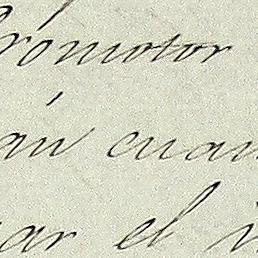 Promotor
án cuan
ar el i